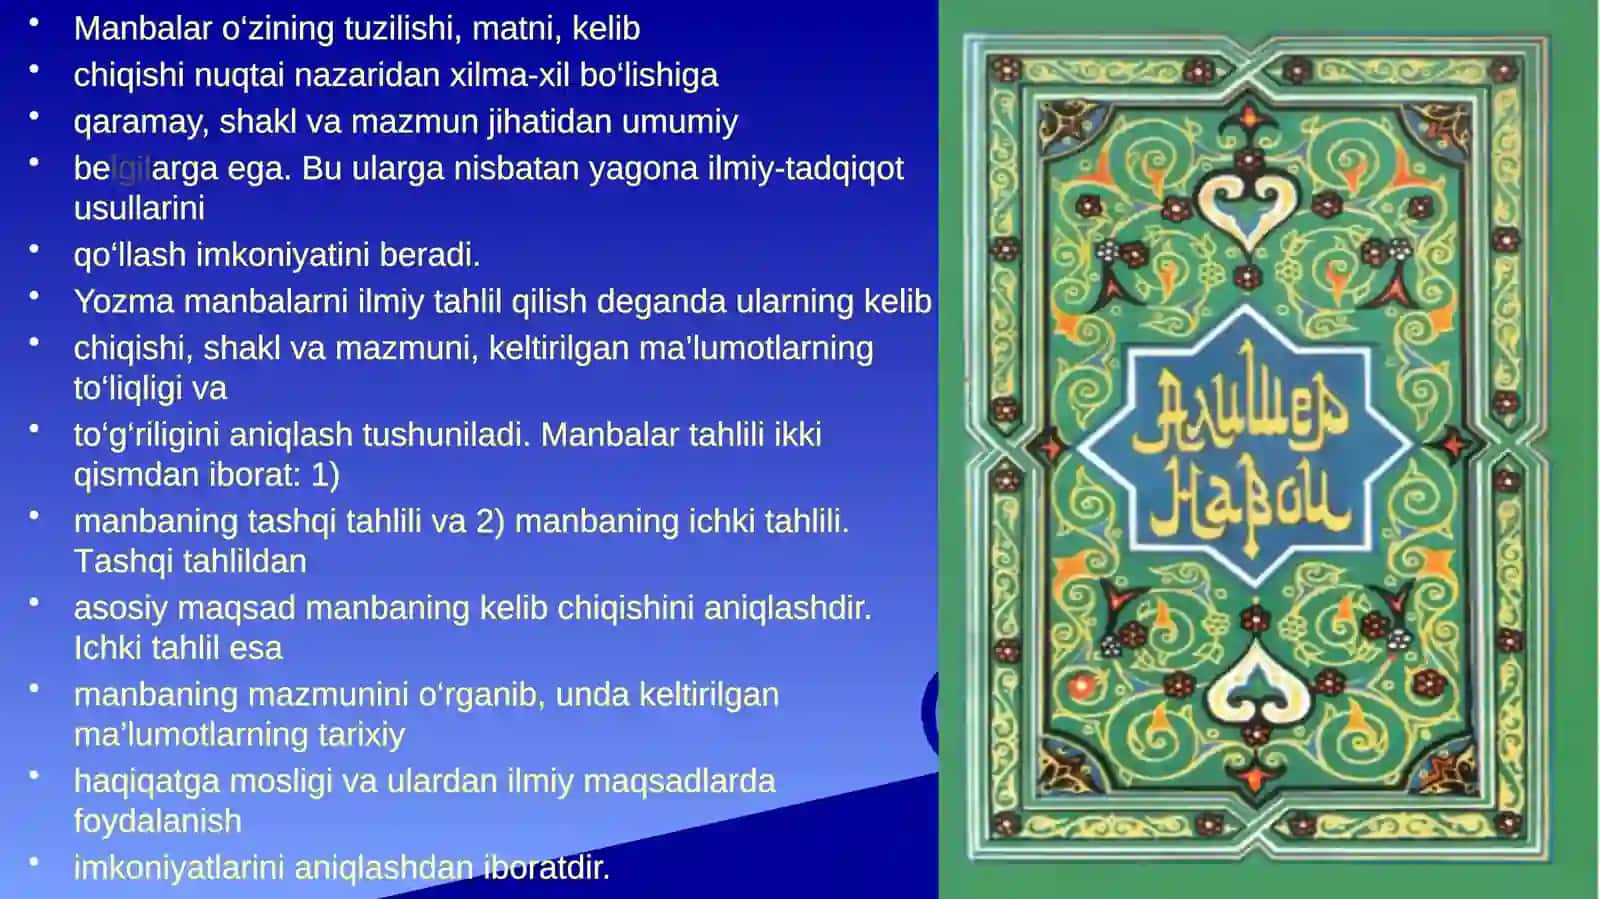 • Manbalar o‘zining tuzilishi, matni, kelib
• chiqishi nuqtai nazaridan xilma-xil bo‘lishiga
• qaramay, shakl va mazmun jihatidan umumiy
• belgilarga ega. Bu ularga nisbatan yagona ilmiy-tadqiqot
usullarini
• qo‘llash imkoniyatini beradi.
• Yozma manbalarni ilmiy tahlil qilish deganda ularning kelib
• chiqishi, shakl va mazmuni, keltirilgan ma’lumotlarning
to‘liqligi va
• to‘g‘riligini aniqlash tushuniladi. Manbalar tahlili ikki
qismdan iborat: 1)
• manbaning tashqi tahlili va 2) manbaning ichki tahlili.
Tashqi tahlildan
• asosiy maqsad manbaning kelib chiqishini aniqlashdir.
Ichki tahlil esa
• manbaning mazmunini o‘rganib, unda keltirilgan
ma’lumotlarning tarixiy
• haqiqatga mosligi va ulardan ilmiy maqsadlarda
foydalanish
• imkoniyatlarini aniqlashdan iboratdir.
Алишер
Навои